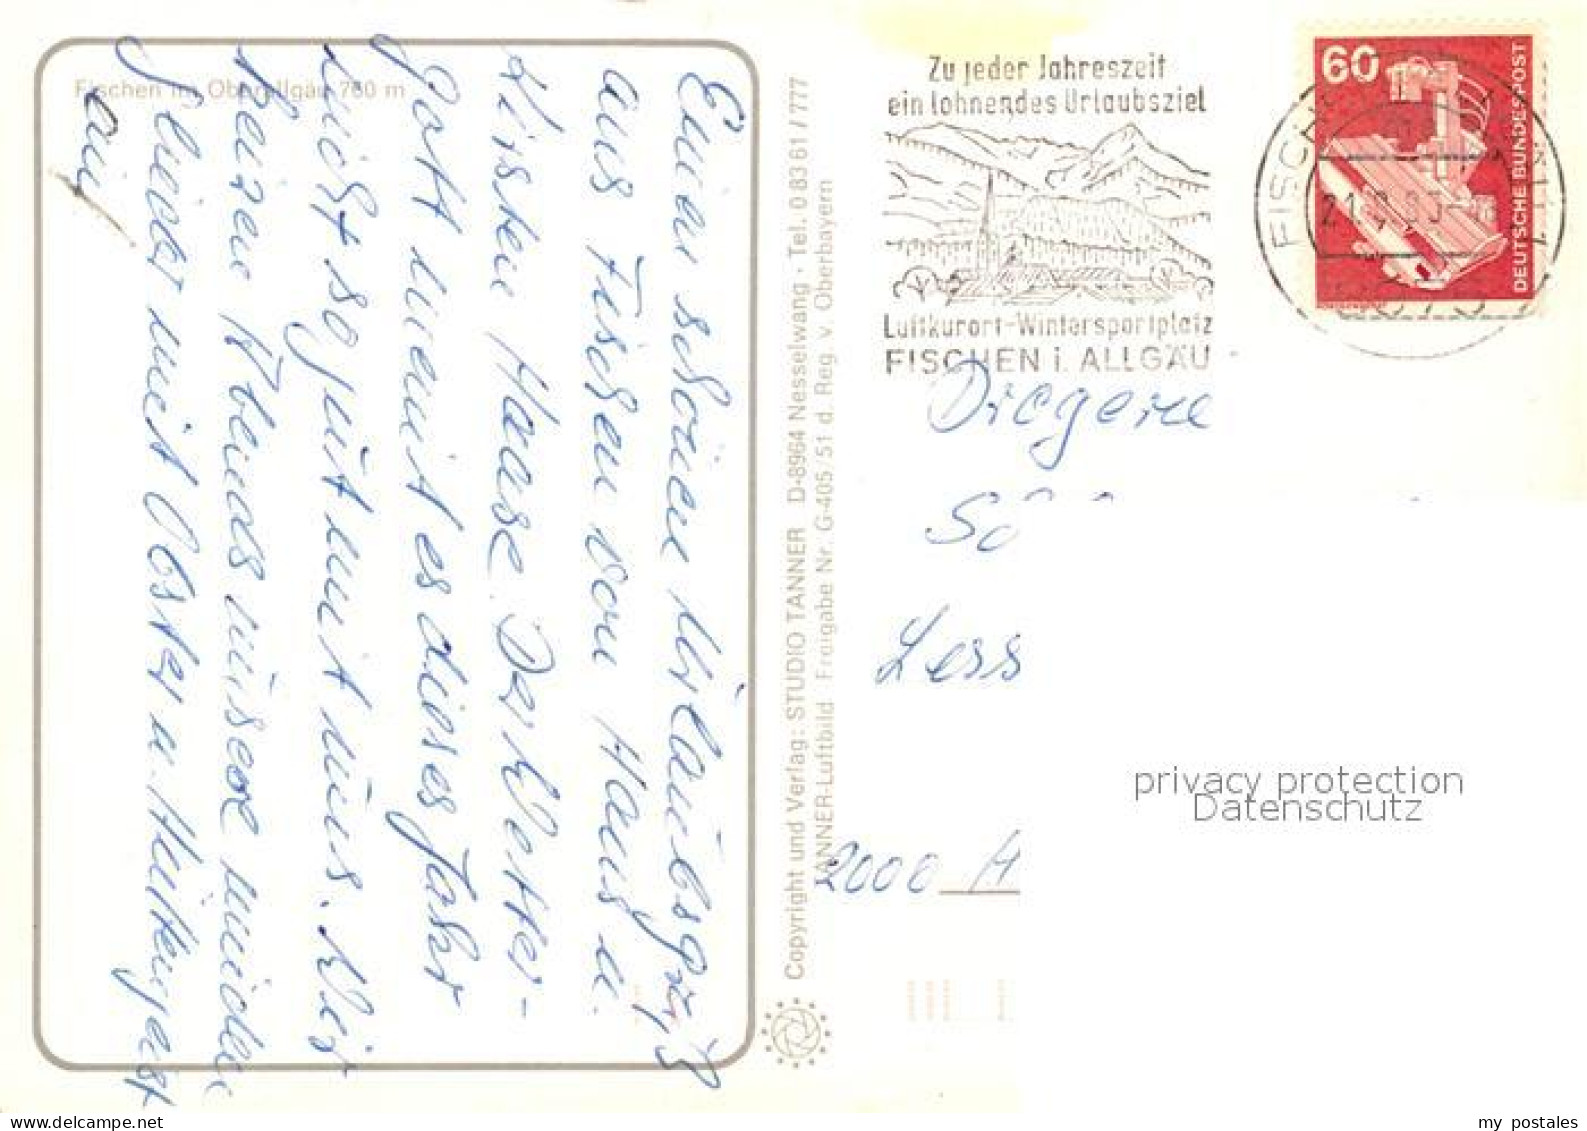 Fischen im Oberallgäu 760 m
Einen schönen Urlaubsgruß
aus Fischen von Haus u.
Kirsten Haase. Der Wetter-
gott meint es dieses Jahr
nicht so gut mit uns. Wir
heizen Abends unsere müden
Glieder mit Obstler u. Hüttengeist
auf
Copyright und Verlag: STUDIO TANNER D-8964 Nesselwang · Tel. 08361/777
TANNER-Luftbild Freigabe Nr. G-405/51 d. Reg. v. Oberbayern
Zu jeder Jahreszeit
ein lohnendes Urlaubsziel
Luftkurort-Wintersportplatz
FISCHEN i. ALLGÄU
60
DEUTSCHE BUNDESPOST
2000 H
privacy protection
Datenschutz
my postales